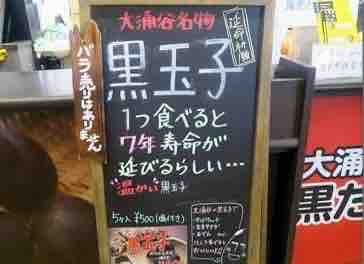 大涌谷名物
延命祈願
黒玉子
バラ売りはありません
1つ食べると
7年寿命が
延びるらしい…
"温かい黒玉子
5ヶ入 ¥500(塩付き)
黒玉子
大涌
黒た